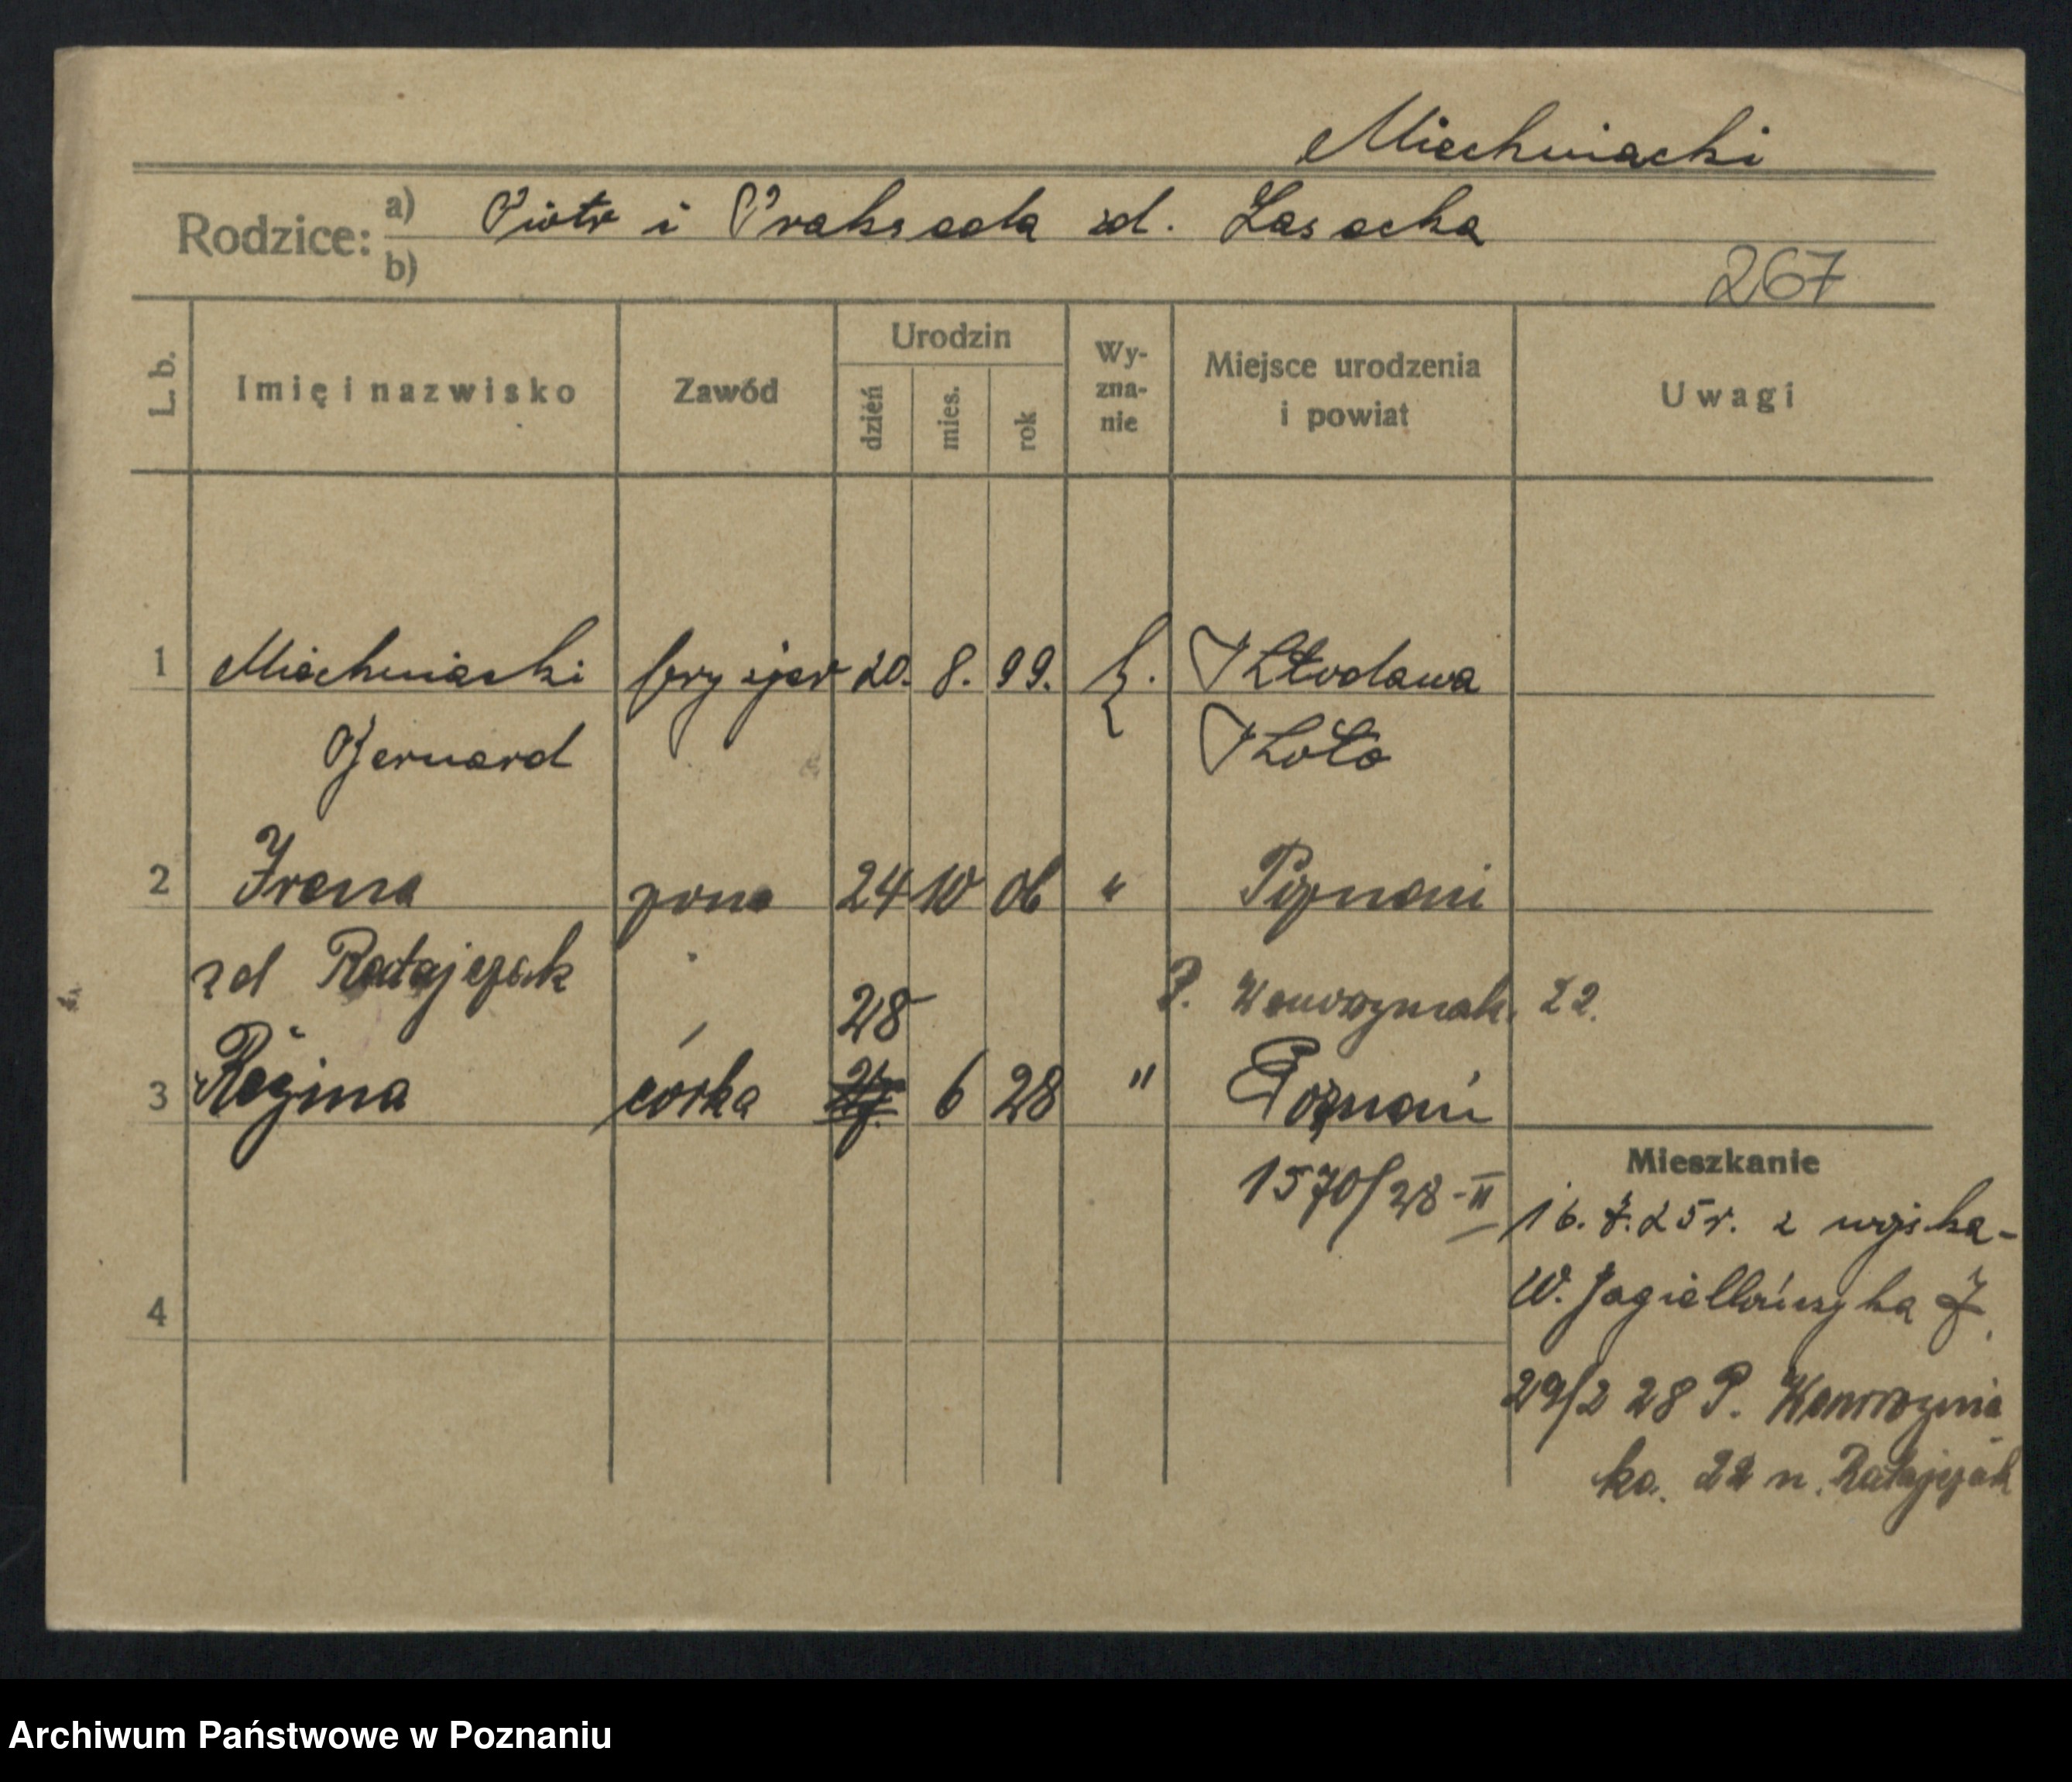 Miechwiacki
Rodzice: a) Piotr i Prakseda zd. Lasecka
b)
267
L. b. Imię i nazwisko Zawód Urodzin dzień mies. rok Wy-zna-nie Miejsce urodzenia i powiat Uwagi
1 Miechwiacki fryzjer 20. 8. 99. k. Kłodawa
Bernard Koło
2 Irena żona 24 10 06 " Poznań
zd Ratajczak
P. Wawrzyniak. 22.
28
3 Regina córka 27. 6 28 " Poznań
1570/28-II
Mieszkanie
16. 7. 25 r. z wojska-
W. Jagiellończyka 7
4
29/2 28 P. Wawrzynia
ka. 22 n. Ratajczak
Archiwum Państwowe w Poznaniu